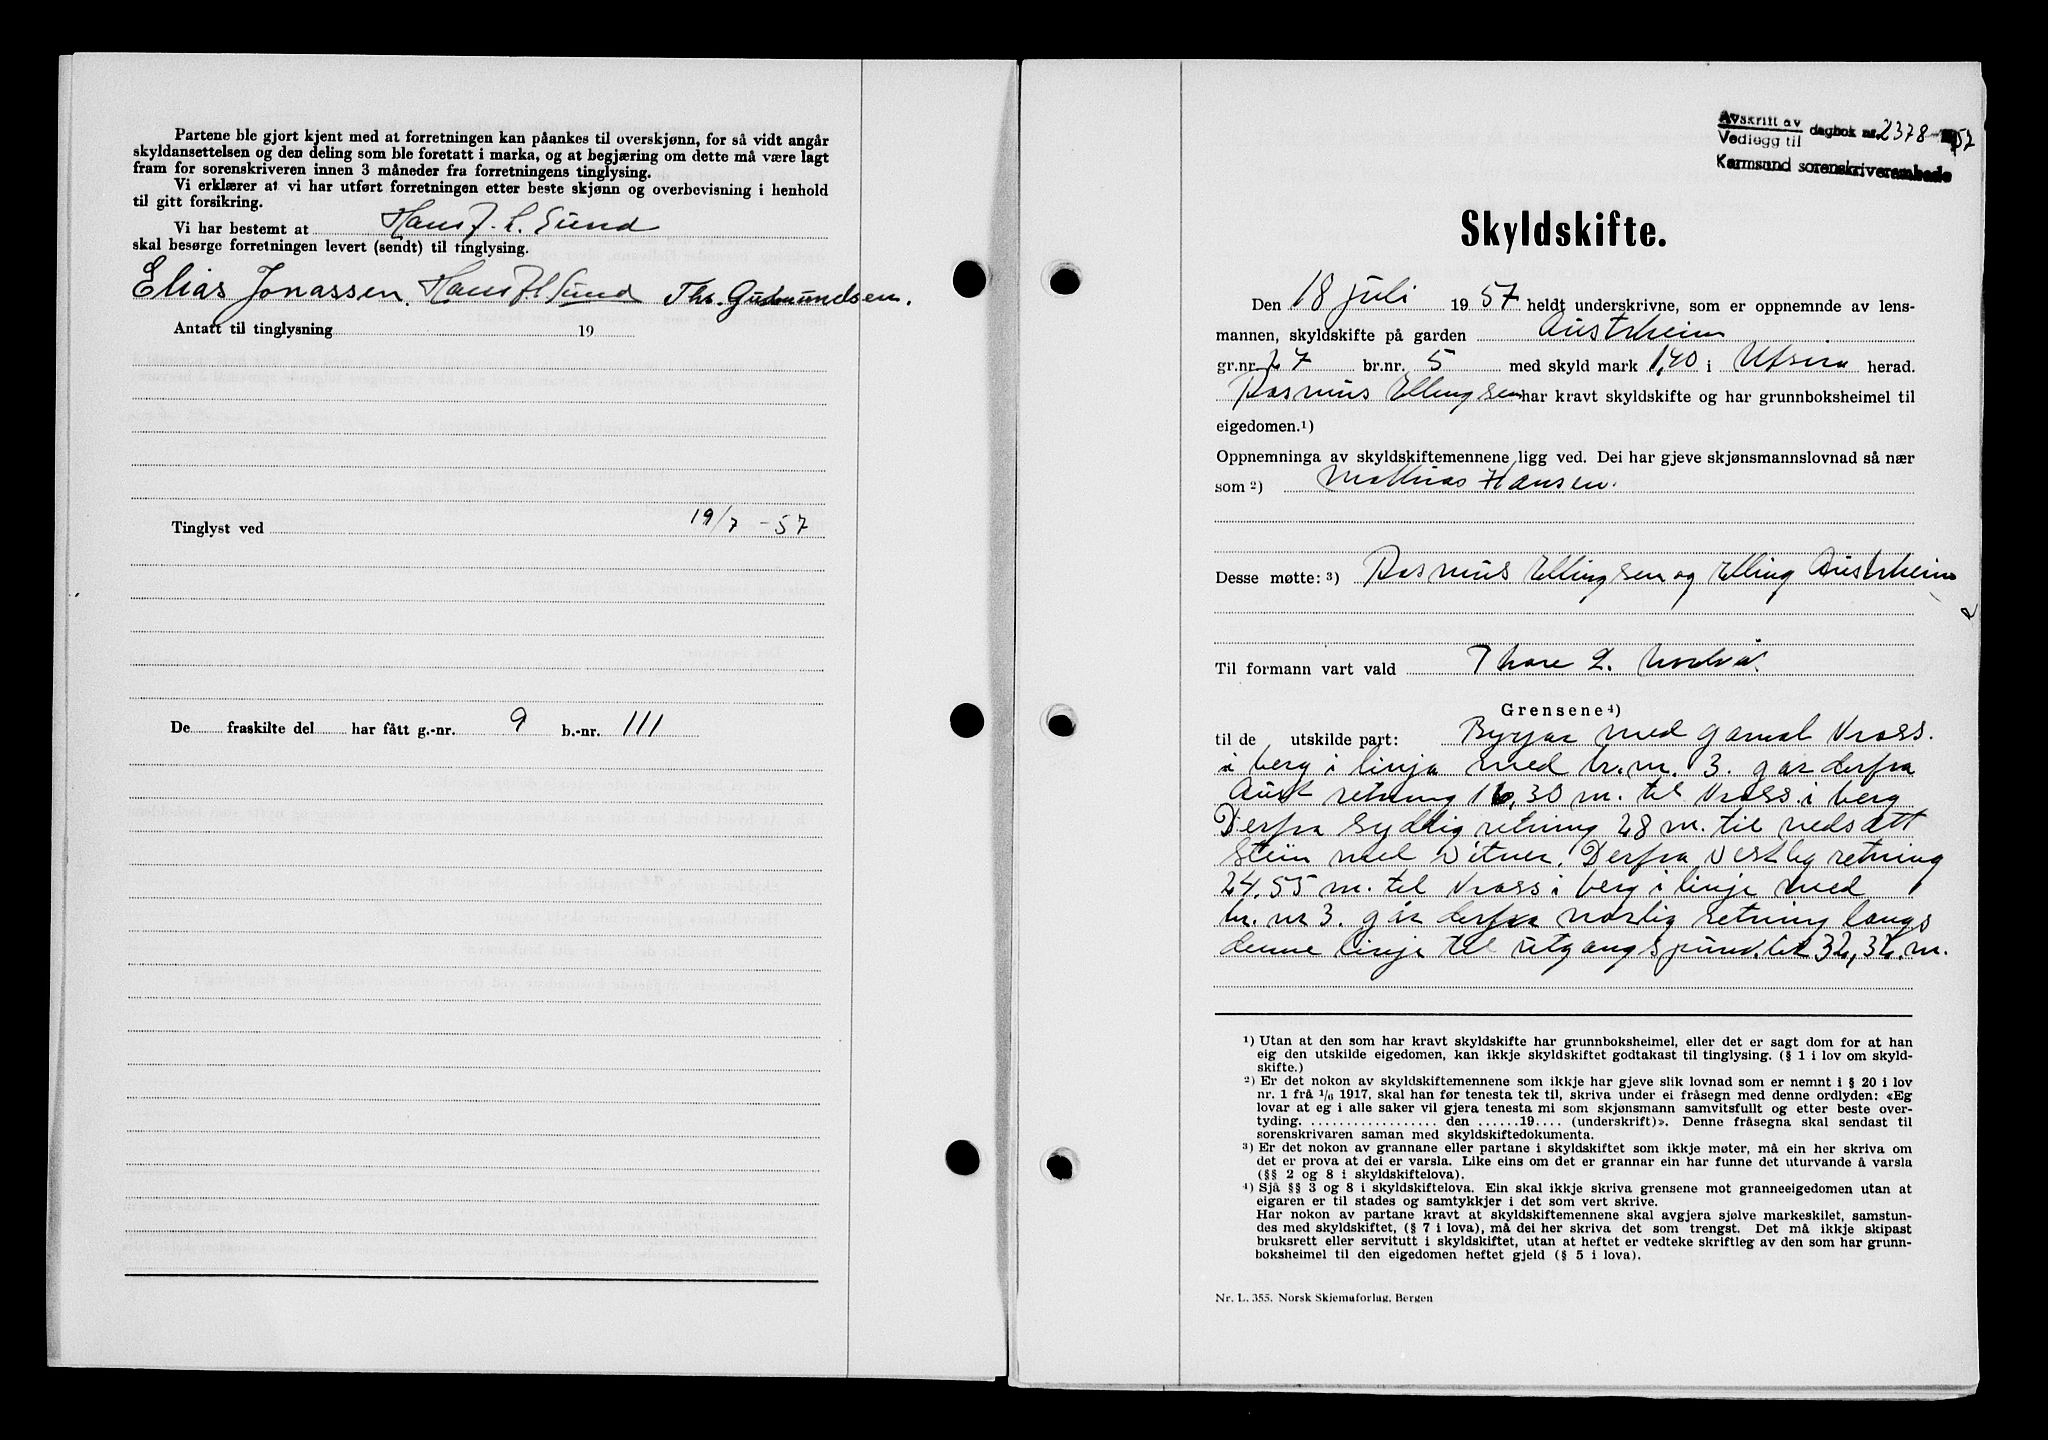 Partene ble gjort kjent med at forretningen kan påankes til overskjønn, for så vidt angår
skyldansettelsen og den deling som ble foretatt i marka, og at begjæring om dette må være lagt
fram for sorenskriveren innen 3 måneder fra forretningens tinglysing.
Vi erklærer at vi har utført forretningen etter beste skjønn og overbevisning i henhold
til gitt forsikring.
Vi har bestemt at Hans J. L. Sund
skal besørge forretningen levert (sendt) til tinglysing.
Elias Jonassen. Hans J L Sund Th. Gudmundsen.
Antatt til tinglysning 19
Tinglyst ved 19/7 - 57
De fraskilte del har fått g.-nr. 9 b.-nr. 111
Avskrift av
Vedlegg til dagbok nr. 2378-1957
Karmsund sorenskriverembede
Skyldskifte.
Den 18 juli 1957 heldt underskrivne, som er oppnemnde av lens-
mannen, skyldskifte på garden Austrheim
gr.nr. 27 br.nr. 5 med skyld mark 1,40 i Utsira herad.
Rasmus Ellingsen har kravt skyldskifte og har grunnboksheimel til
eigedomen.¹)
Oppnemninga av skyldskiftemennene ligg ved. Dei har gjeve skjønsmannslovnad så nær
som ²) Mathias Hansen.
Desse møtte: ³) Rasmus Ellingsen og Elling Austrheim
Til formann vart vald Thore L.
Grensene ⁴)
til de utskilde part: Byrjar med gamal kross.
i berg i linja med br.nr. 3. går derfra
Aust retning 16,30 m. til kross i berg
Derfra sydlig retning 28 m. til nedsatt
stein med vitner. Derfra vestlig retning
24,55 m. til kross i berg i linje med
br. nr 3. går derfra norlig retning langs
denne linje til utgangspunktet 32,32 m.
¹) Utan at den som har kravt skyldskifte har grunnboksheimel, eller det er sagt dom for at han
eig den utskilde eigedomen, kan ikkje skyldskiftet godtakast til tinglysing. (§ 1 i lov om skyld-
skifte.)
²) Er det nokon av skyldskiftemennene som ikkje har gjeve slik lovnad som er nemnt i § 20 i lov
nr. 1 frå 1/6 1917, skal han før tenesta tek til, skriva under ei fråsegn med denne ordlyden: «Eg
lovar at eg i alle saker vil gjera tenesta mi som skjønsmann samvitsfullt og etter beste over-
tyding. ................... den ......19.... (underskrift)». Denne fråsegna skal sendast til
sorenskrivaren saman med skyldskiftedokumenta.
³) Er det nokon av grannane eller partane i skyldskiftet som ikkje møter, må ein her skriva om
det er prova at dei er varsla. Like eins om det er grannar ein har funne det uturvande å varsla
(§§ 2 og 8 i skyldskiftelova).
⁴) Sjå §§ 3 og 8 i skyldskiftelova. Ein skal ikkje skriva grensene mot granneeigedomen utan at
eigaren er til stades og samtykkjer i det som vert skrive.
Har nokon av partane kravt at skyldskiftemennene skal avgjera sjølve markeskilet, samstun-
des med skyldskiftet, (§ 7 i lova), må dei her skriva det som trengst. Det må ikkje skipast
bruksrett eller servitutt i skyldskiftet, utan at heftet er vedteke skriftleg av den som har grunn-
boksheimel til den eigedomen heftet gjeld (§ 5 i lova).
Nr. L. 355. Norsk Skjemaforlag, Bergen